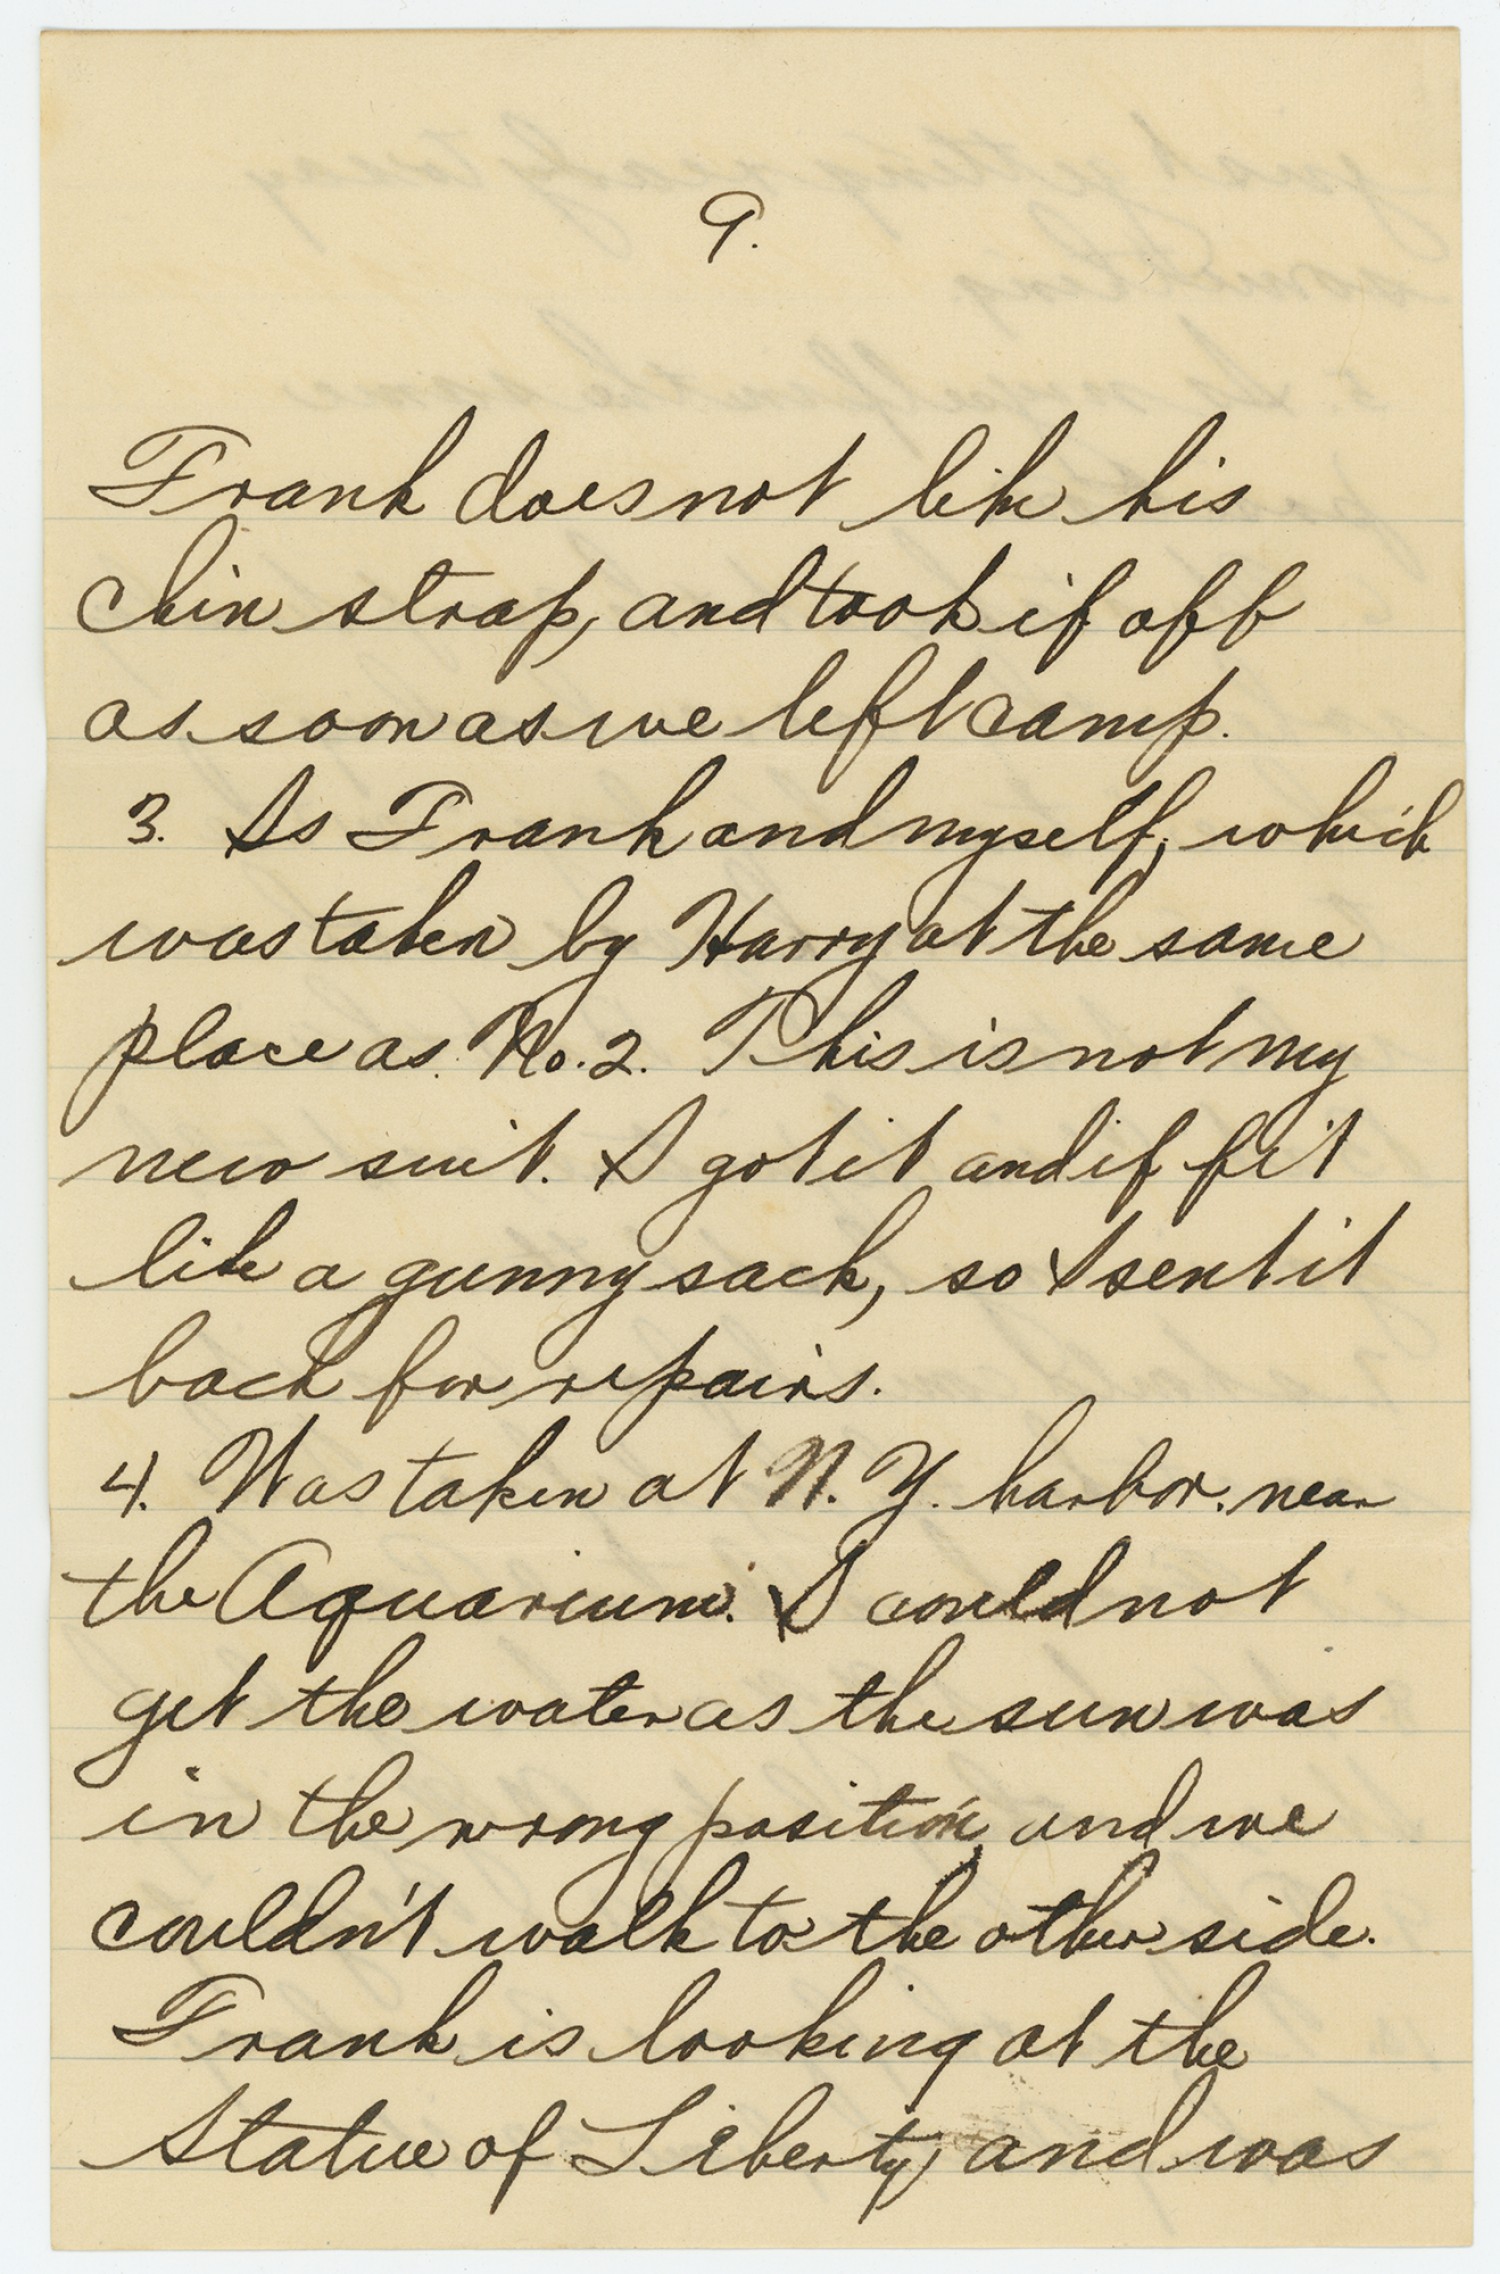 9.
Frank does not like his
chin strap, and took if off
as soon as we left camp.
3. Is Frank and myself, which
was taken by Harry at the same
place as No. 2. This is not my
new suit. I got it and if fit
like a gunny sack, so I sent it
back for repairs.
4. Was taken at N. Y. harbor. near
the Aquarium. I could not
get the water as the sun was
in the wrong position, and we
couldn't walk to the other side.
Frank is looking at the
Statue of Liberty, and was